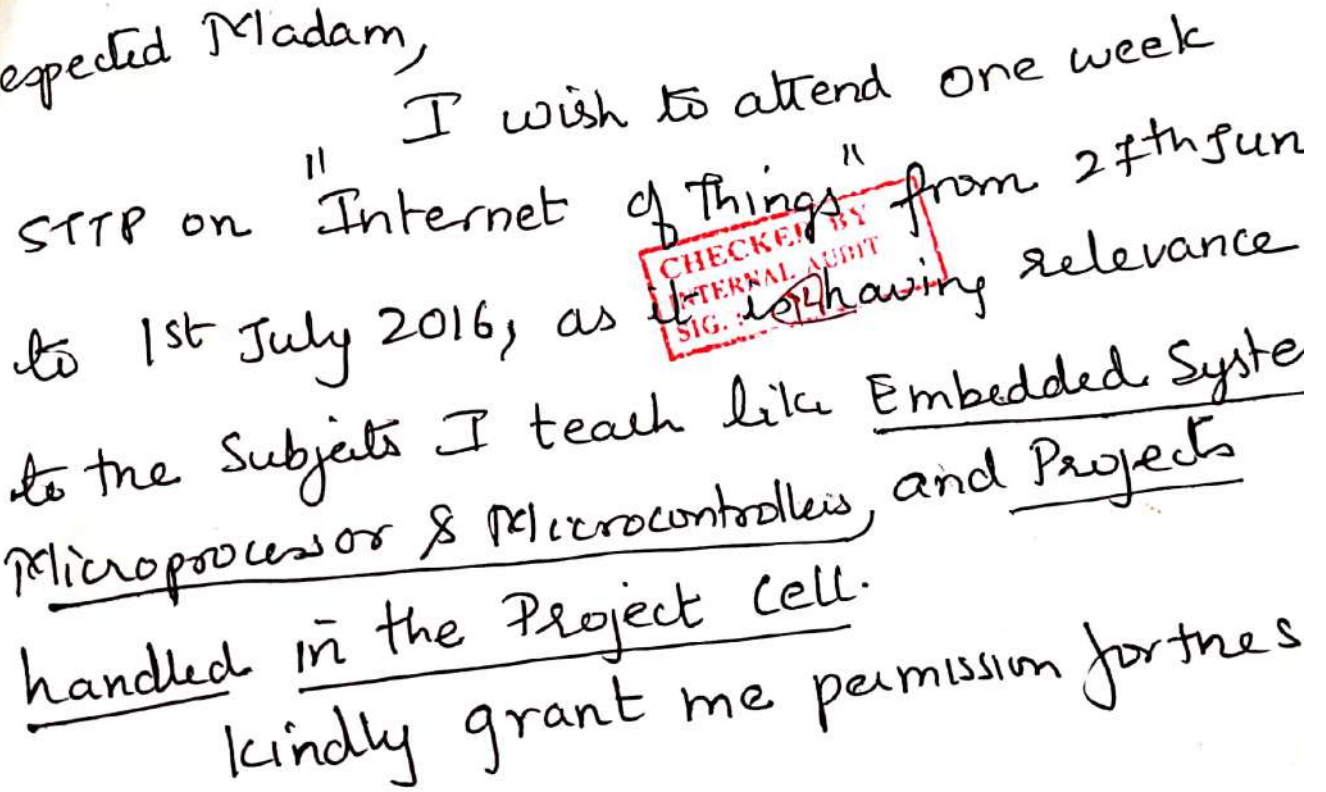 espected Madam,
I wish to attend one week
STTP on "Internet of Things" from 27th Jun
to 1st July 2016, as it is having relevance
CHECKED BY
INTERNAL AUDIT
SIG. :
to the Subjects I teach like Embedded Syste
Microprocessor & Microcontrollers, and Projects
handled in the Project Cell.
kindly grant me permission for the s